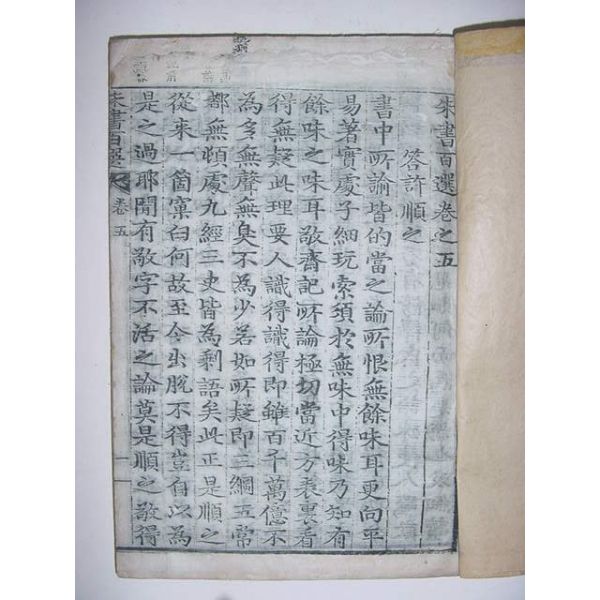 朱書百選卷之五
答許順之
書中所論皆的當之論所恨無餘味耳更向平
易著實處子細玩索須於無味中得味乃知有
餘味之味耳敬齋記所論極切當近方表裏看
得無疑此理要人識得識得即雖百千萬億不
為多無聲無臭不為少若如所疑即三綱五常
都無頓處九經三史皆為剩語矣此正是順之
從來一箇窠臼何故至今出脫不得豈自以為
是之過耶聞有敬字不活之論莫是順之敬得
朱書百選 卷五 一